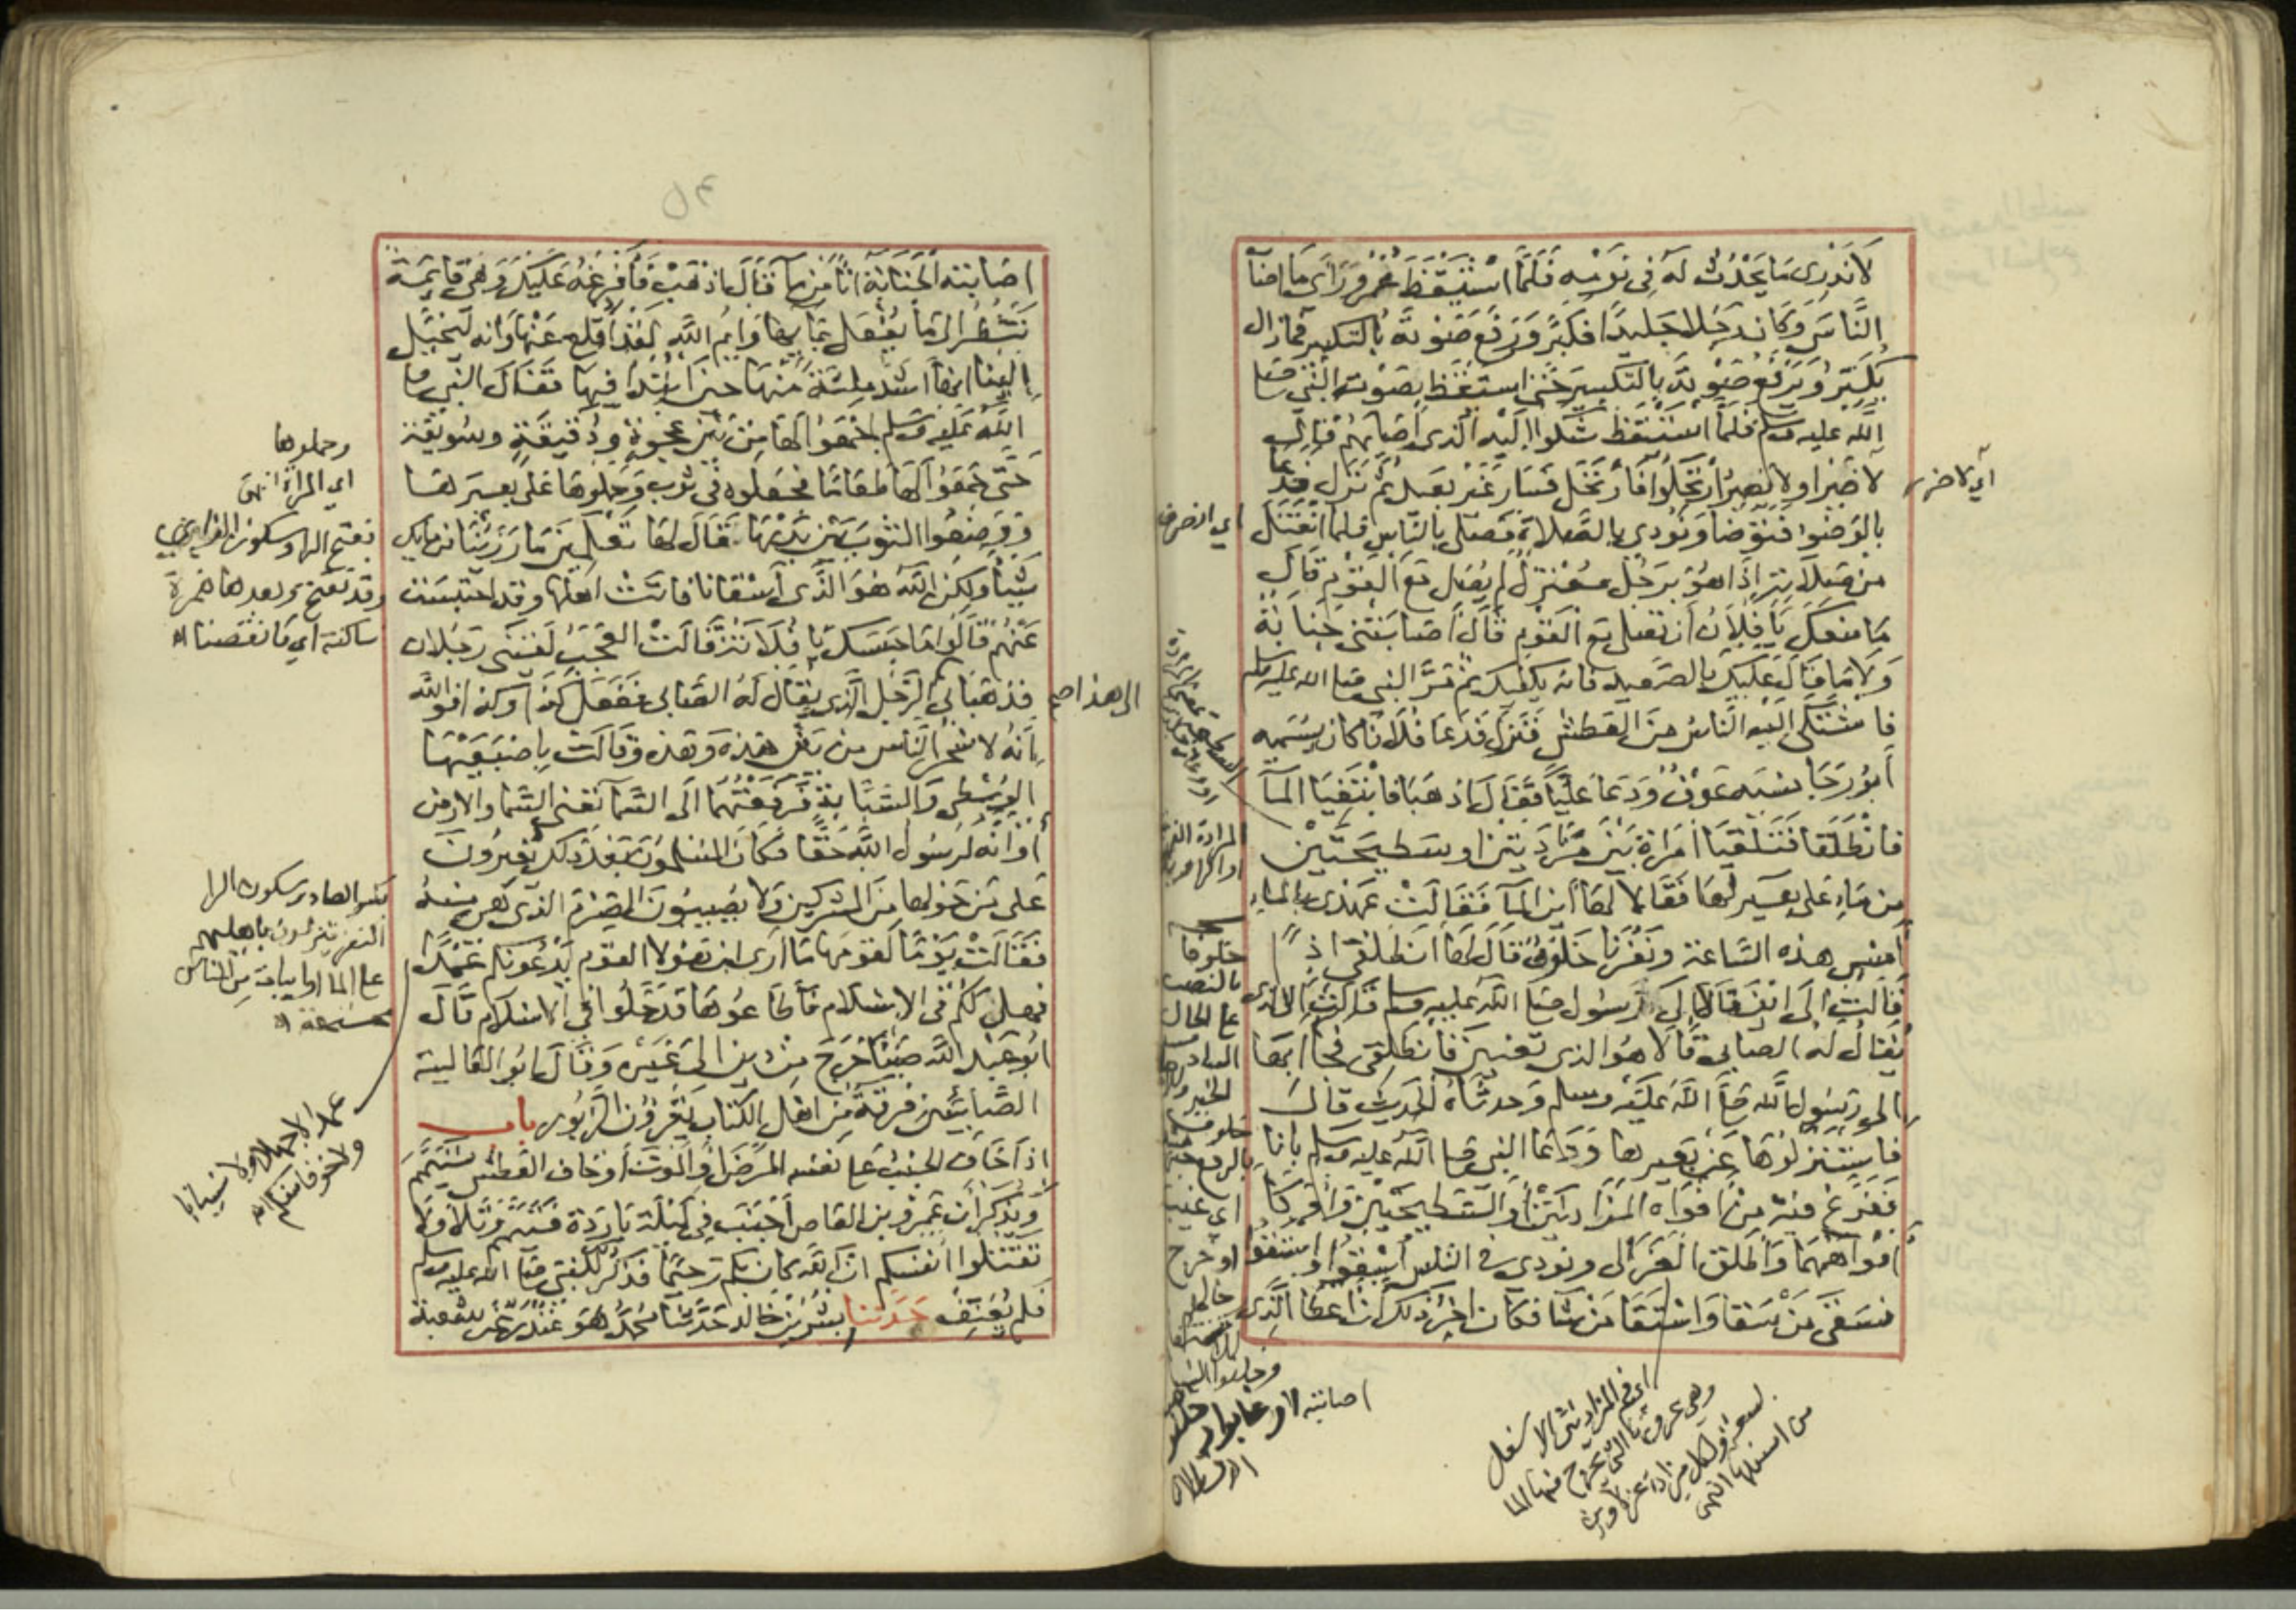 لا ندرى ما يحدث له في نومه فلما استيقظ عمر وراى ما اصاب
الناس وكان رجلا جليدا فكبر ورفع صوته بالتكبير فما زال
يكبر ويرفع صوته بالتكبير حتى استيقظ بصوته النبي صلى
الله عليه وسلم فلما استيقظ شكوا اليه الذى اصابهم فقال
لا ضير او لا يضير ارتحلوا فارتحل فسار غير بعيد ثم نزل فدعا
بالوضوء فتوضا ونودى بالصلاة فصلى بالناس فلما انفتل
من صلاته اذا هو برجل معتزل لم يصل مع القوم قال
ما منعك يا فلان أن تصلى مع القوم قال اصابتنى جنابة
ولا ما قال عليك بالصعيد فانه يكفيك ثم سار النبي صلى الله عليه وسلم
فاشتكى اليه الناس من العطش فنزل فدعا فلانا كان يسميه
أبو رجا نسيه عوف ودعا عليا فقال اذهبا فابتغيا المآ
فانطلقا فتلقيا امراة بين مزادتين او سطيحتين
من ماء على بعير لها فقالا لها أين المآ فقالت عهدى بالماء
أمس هذه الساعة ونفرنا خلوف قال لها انطلقى اذا
قالت الى اين قالا الى رسول صلى الله عليه وسلم قالت الذى
يقال له الصابى قالا هو الذى تعنين فانطلقى فجاا بها
الى رسول الله صلى الله عليه وسلم وحدثاه الحديث قال
فاستنزلوها عن بعيرها ودعا النبي صلى الله عليه وسلم باناء
ففرغ فيه من افواه المزادتين أو السطيحتين واوكأ
أفواههما وأطلق العزالى ونودى في الناس أسقوا واستقوا
فسقى من سقا واستقا من شا فكان اخر ذلك أن اعطا الذى
أي لا ضرر
اي انصرف
المزادة
خلوفا
بالنصب
على الحال
بالرفع
اصابته
اي فم المزادتين الاسفل
وهي عروتها التي يخرج منها الما
من اسفلها انتهى
اصابته الجنابة انا من ما فقال اذهب فأفرغه عليك وهي قايمة
تنظر الى ما يفعل بمايها وايم الله لقد أقلع عنها وانه ليخيل
الينا انها أشد ملئة منها حين ابتدا فيها فقال النبي صلى
الله عليه وسلم اجمعوا لها من بين عجوة ودقيقة وسويقة
حتى جمعوا لها طعاما فجعلوه في ثوب وحملوها على بعيرها
ووضعوا الثوب بين يديها فقال لها تعلمين ما رزئنا من مايك
شيئا ولكن الله هو الذى أسقانا فاتت اهلها وقد احتبست
عنهم قالوا ما حبسك يا فلانة قالت العجب لقينى رجلان
فذهبا بى الى هذا الرجل الذى يقال له الصابى ففعل كذا وكذا فوالله
انه لا سحر الناس من بين هذه وهذه وقالت باصبعيها
الوسطى والسبابة فرفعتهما الى السما تعنى السما والارض
أو انه لرسول الله حقا فكان المسلمون بعد ذلك يغيرون
على من حولها من المشركين ولا يصيبون الصرم الذى هى منه
فقالت يوما لقومها ما أرى ان هؤلا القوم يدعونكم عمدا
فهل لكم في الاسلام فأطاعوها فدخلوا في الاسلام قال
ابو عبد الله صبأ خرج من دين الى غيره وقال ابو العالية
الصابئين فرقة من اهل الكتاب يقرؤن الزبور باب
اذا خاف الجنب على نفسه المرض أو الموت أو خاف العطش تيمم
ويذكر أن عمرو بن العاص أجنب في ليلة باردة فتيمم وتلا ولا
تقتلوا أنفسكم ان الله كان بكم رحيما فذكر للنبى صلى الله عليه وسلم
فلم يعنف حدثنا بشر بن خالد حدثنا محمد هو غندر عن شعبة
وحملوها
اي المراة انتهى
بفتح الرا وسكون
وقد تفتح وبعدها همزة
ساكنة اي ما نقصنا اه
الى هذا صح
بكسر الصاد وسكون الرا
النفر ينزلون باهليهم
على الما او ابيات من الناس
مجتمعة اه
عمدا لا جهلا ولا نسيانا
ولا خوفا منكم اه